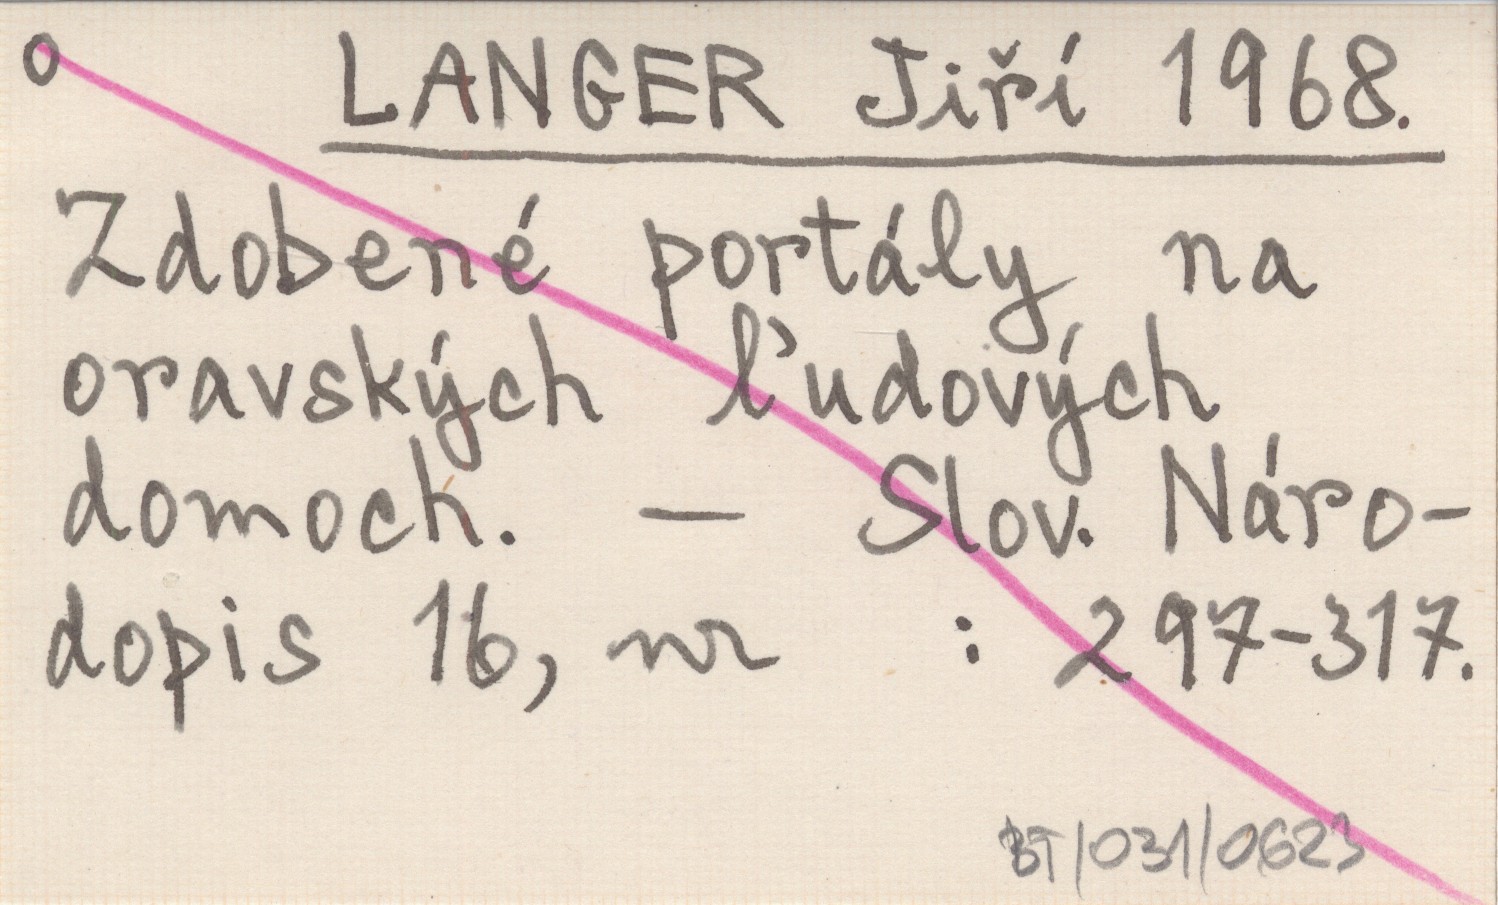 o LANGER Jiří 1968.
Zdobené portály na
oravských ľudových
domoch. — Slov. Náro-
dopis 16, nr : 297-317.
BT/031/0623